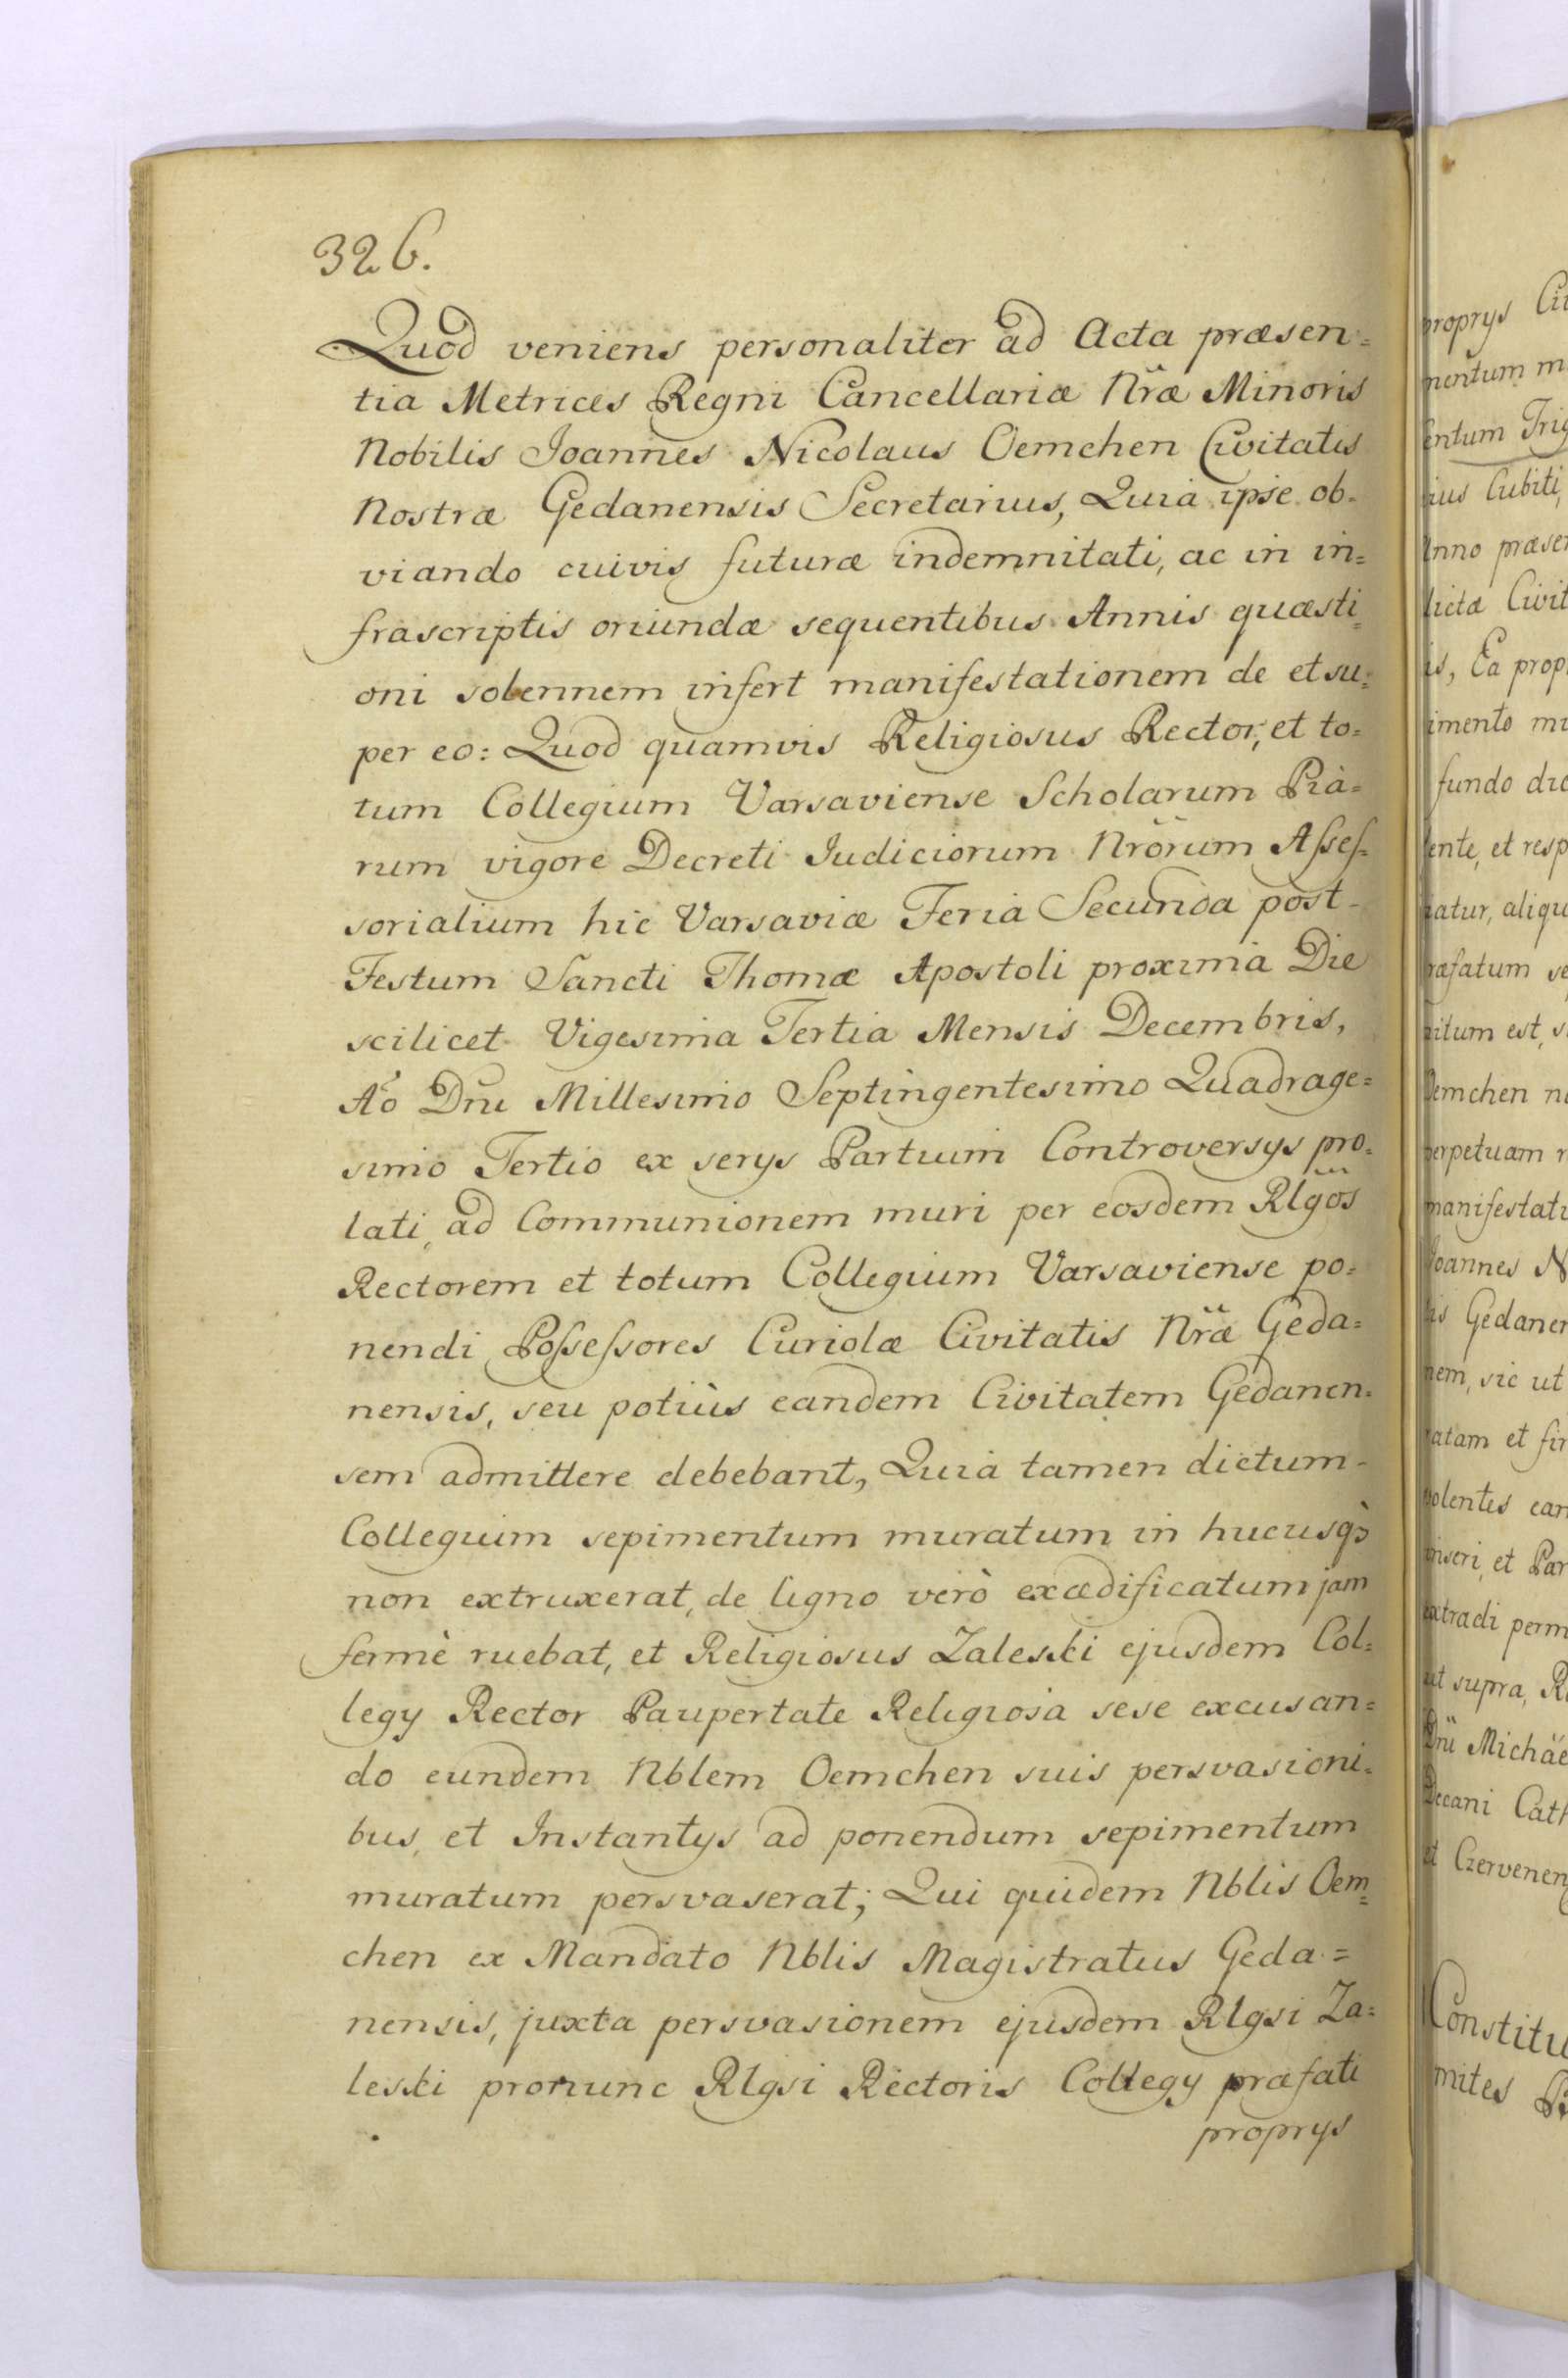 326.
Quod veniens personaliter ad Acta præsen=
tia Metrices Regni Cancellariæ Nræ Minoris
Nobilis Joannes Nicolaus Oemchen Civitatis
Nostræ Gedanensis Secretarius, Quia ipse ob=
viando cuivis futuræ indemnitati, ac in in=
frascriptis oriundæ sequentibus Annis quæsti=
oni solennem infert manifestationem de et su=
per eo: Quod quamvis Religiosus Rector, et to=
tum Collegium Varsaviense Scholarum Pià=
rum vigore Decreti Judiciorum Nrorum Asses=
sorialium hic Varsaviæ Feria Secunda post
Festum Sancti Thomæ Apostoli proxima Die
scilicet Vigesima Tertia Mensis Decembris,
Aő Dni Millesimo Septingentesimo Quadrage=
simo Tertio ex serys Partium Controversys pro=
lati, ad Communionem muri per eosdem Rlgos
Rectorem et totum Collegium Varsaviense po=
nendi Possessores Curiolæ Civitatis Nræ Geda=
nensis, seu potiùs eandem Civitatem Gedanen=
sem admittere debebant, Quia tamen dictum
Collegium sepimentum muratum in hucusq3
non extruxerat, de ligno verò exædificatum jam
fermè ruebat, et Religiosus Zaleski ejusdem Col=
legy Rector Paupertate Religiosa sese excusan=
do eundem Nblem Oemchen suis persvasioni=
bus, et Instantys ad ponendum sepimentum
muratum persvaserat; Qui quidem Nblis Oem=
chen ex Mandato Nblis Magistratus Geda=
nensis, juxta persvasionem ejusdem Rlgsi Za=
leski pronunc Rlgsi Rectoris Collegy præfati
proprys
proprys
mentum
entum
ius Cubiti,
Anno
dictæ
is, Ea
imento
fundo
ente, et
atur,
æfatum
itum est,
Oemchen
perpetuam
Joannes
is
nem, sic ut
atam et
volentes
inseri, et
extradi
ut supra,
Decani
et
mites